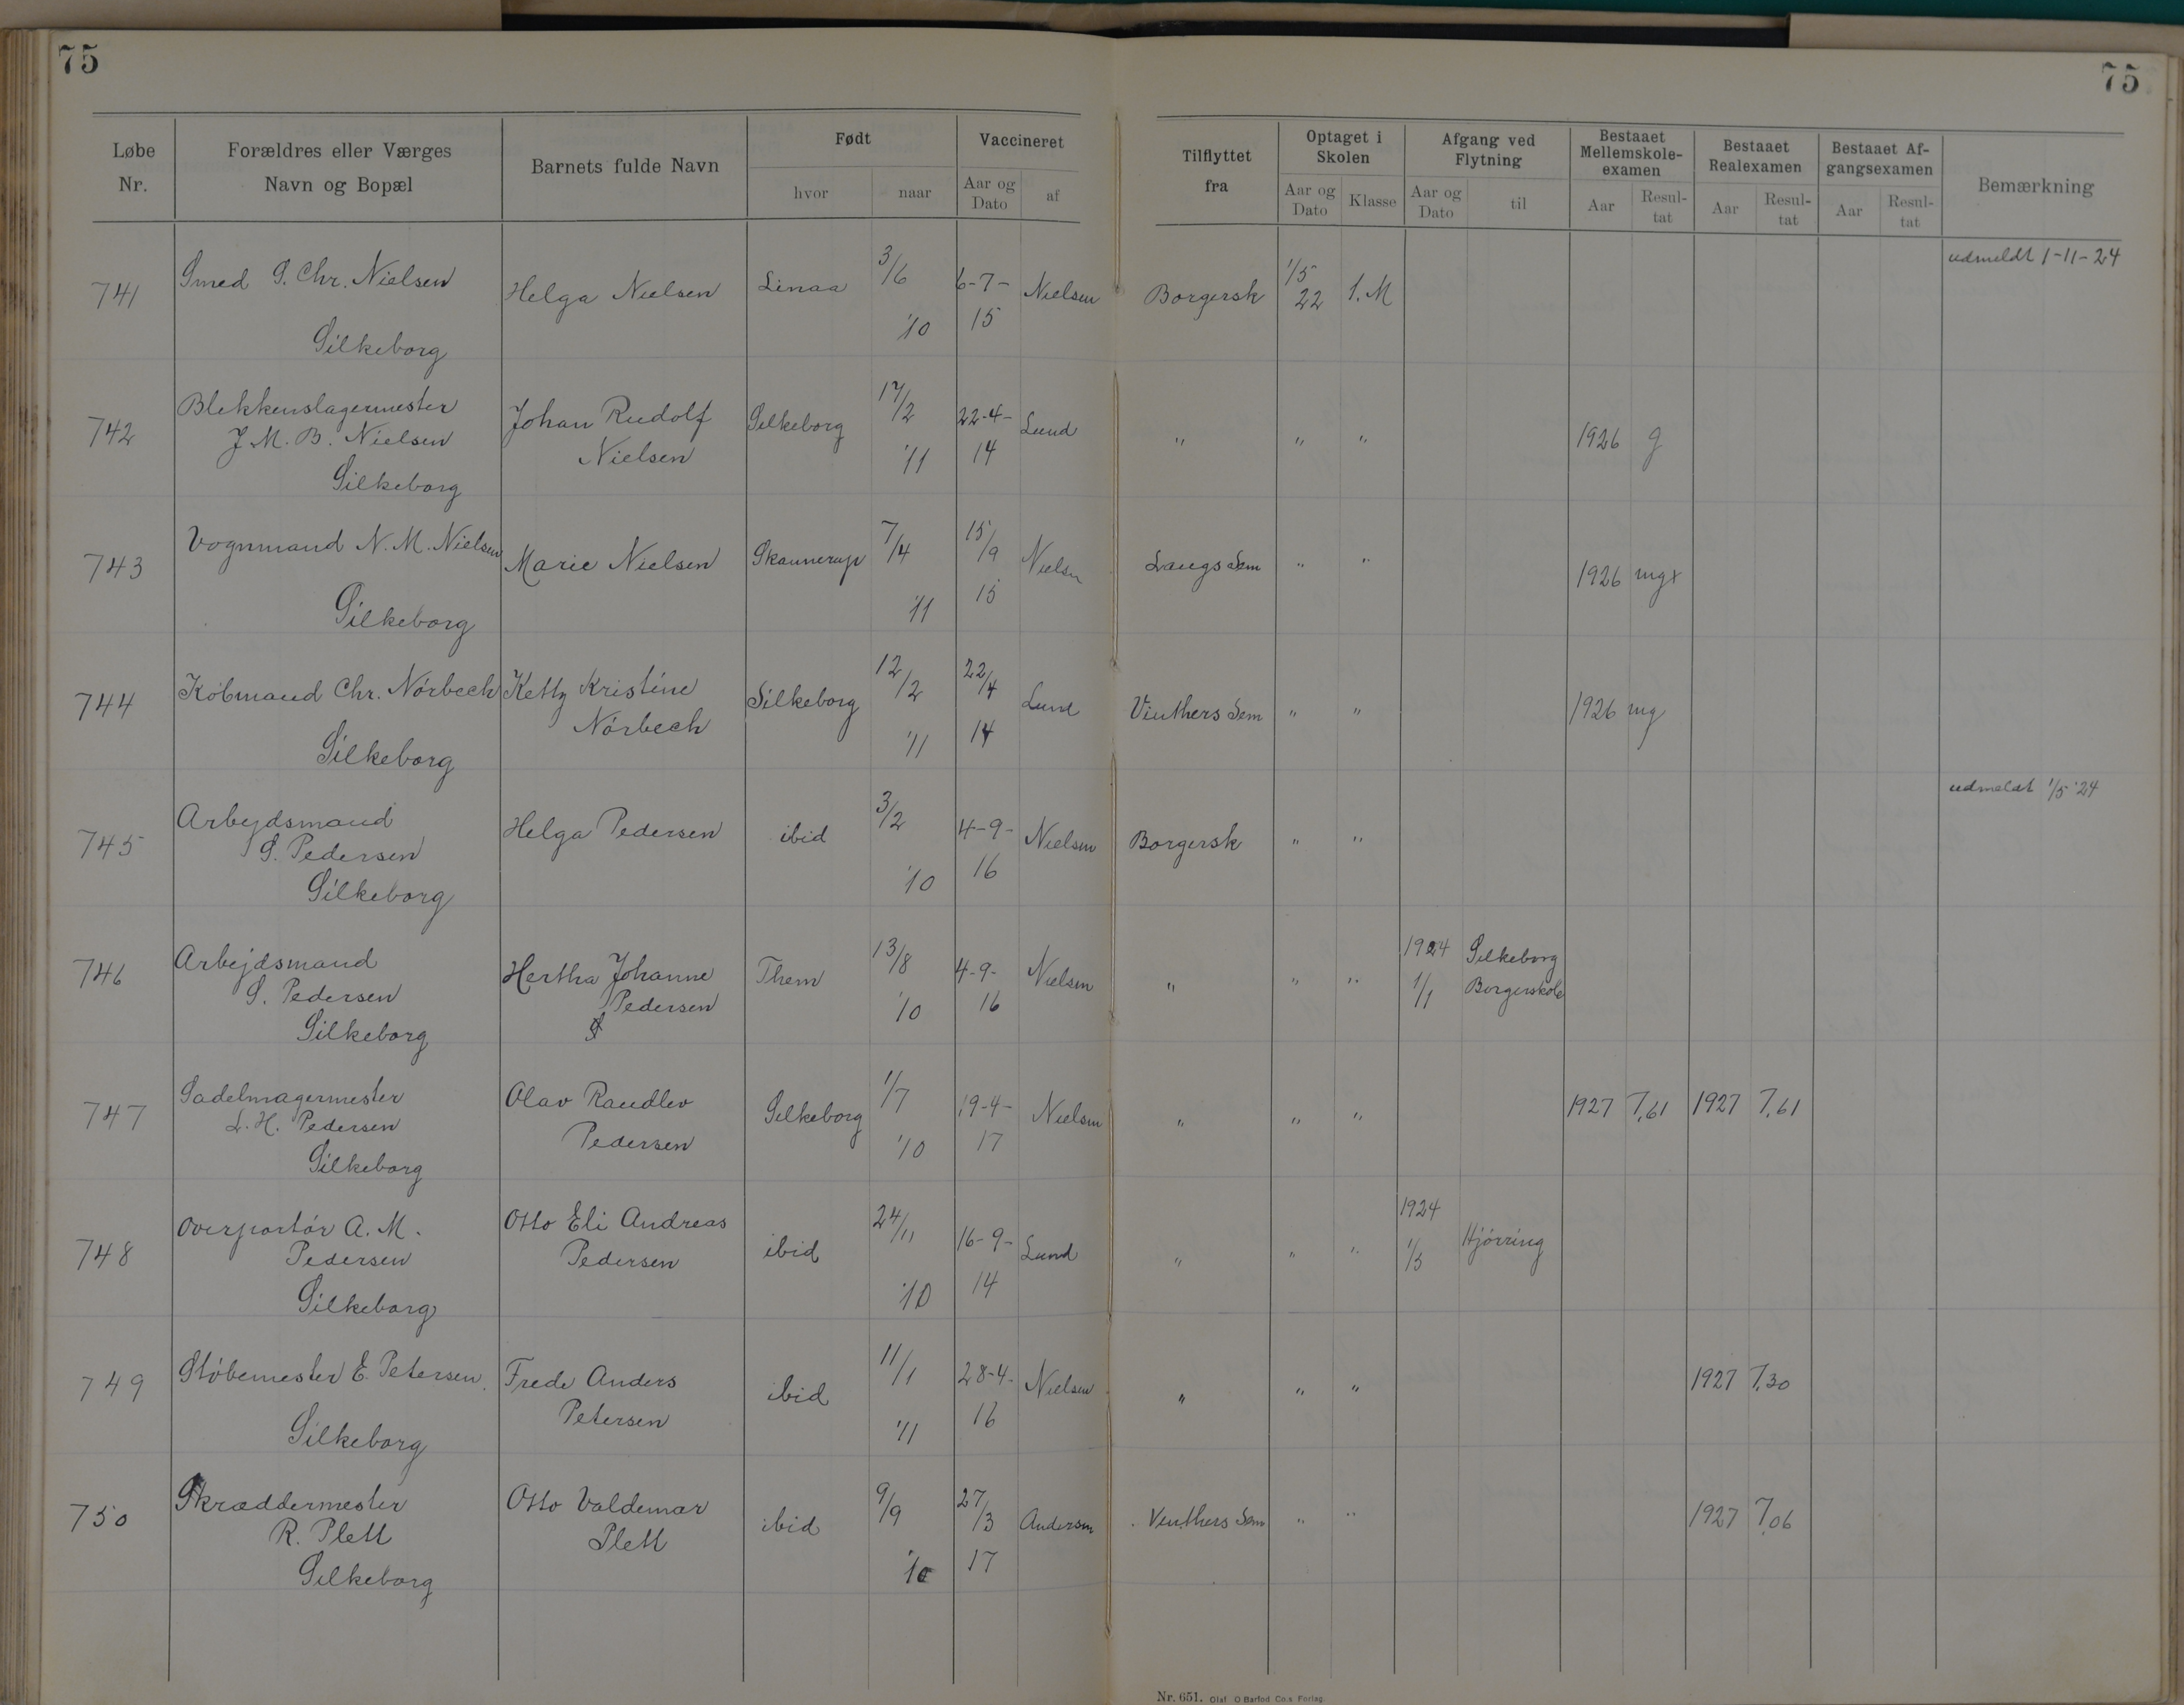 75
75
Løbe Nr. Forældres eller Værges Navn og Bopæl Barnets fulde Navn Født hvor naar Vaccineret Aar og Dato af Tilflyttet fra Optaget i Skolen Aar og Dato Klasse Afgang ved Flytning Aar og Dato til Bestaaet Mellemskole-examen Aar Resul-tat Bestaaet Realexamen Aar Resul-tat Bestaaet Af-gangsexamen Aar Resul-tat Bemærkning
udmeldt 1-11-24
741 Smed S. Chr. Nielsen Helga Nielsen Linaa 3/6 6-7- Nielsen Borgersk 1/5 22 1. M
Silkeborg '10 15
742 Blekkenslagermester Johan Rudolf Silkeborg 17/2 22-4- Lund " " " 1926 g
J. M. B. Nielsen Nielsen '11 14
Silkeborg
743 Vognmand N. M. Nielsen Marie Nielsen Skannerup 7/4 15/9 Nielsn Langs Sem " " 1926 mg+
Silkeborg '11 15
744 Købmand Chr. Nørbech Ketty Kristine Silkeborg 12/2 22/4 Lund Vinthers Sem " " 1926 mg
Silkeborg Nørbech '11 14
udmeldt 1/5 '24
745 Arbejdsmand Helga Pedersen ibid 3/2 4-9- Nielsen Borgersk " "
S. Pedersen '10 16
Silkeborg
746 Arbejdsmand Hertha Johanne Them 13/8 4-9- Nielsen " " " 1924 Silkeborg
S. Pedersen Pedersen '10 16 1/1 Borgerskole
Silkeborg
747 Sadelmagermester Olav Randlev Silkeborg 1/7 19-4- Nielsen " " " 1927 7,61 1927 7,61
L. H. Pedersen Pedersen '10 17
Silkeborg
748 Overportør A. M. Otto Eli Andreas ibid 24/11 16-9- Lund " " " 1924 Hjørring
Pedersen Pedersen '10 14 1/3
Silkeborg
749 Støbemester E. Petersen Frede Anders ibid 11/1 28-4- Nielsen " " " 1927 7,30
Silkeborg Petersen '11 16
750 Skræddermester Otto Valdemar ibid 9/9 27/3 Andersen Vinthers Sem " " 1927 7,06
R. Plett Plett '10 17
Silkeborg
Nr. 651. Olaf O Barfod Co.s Forlag.